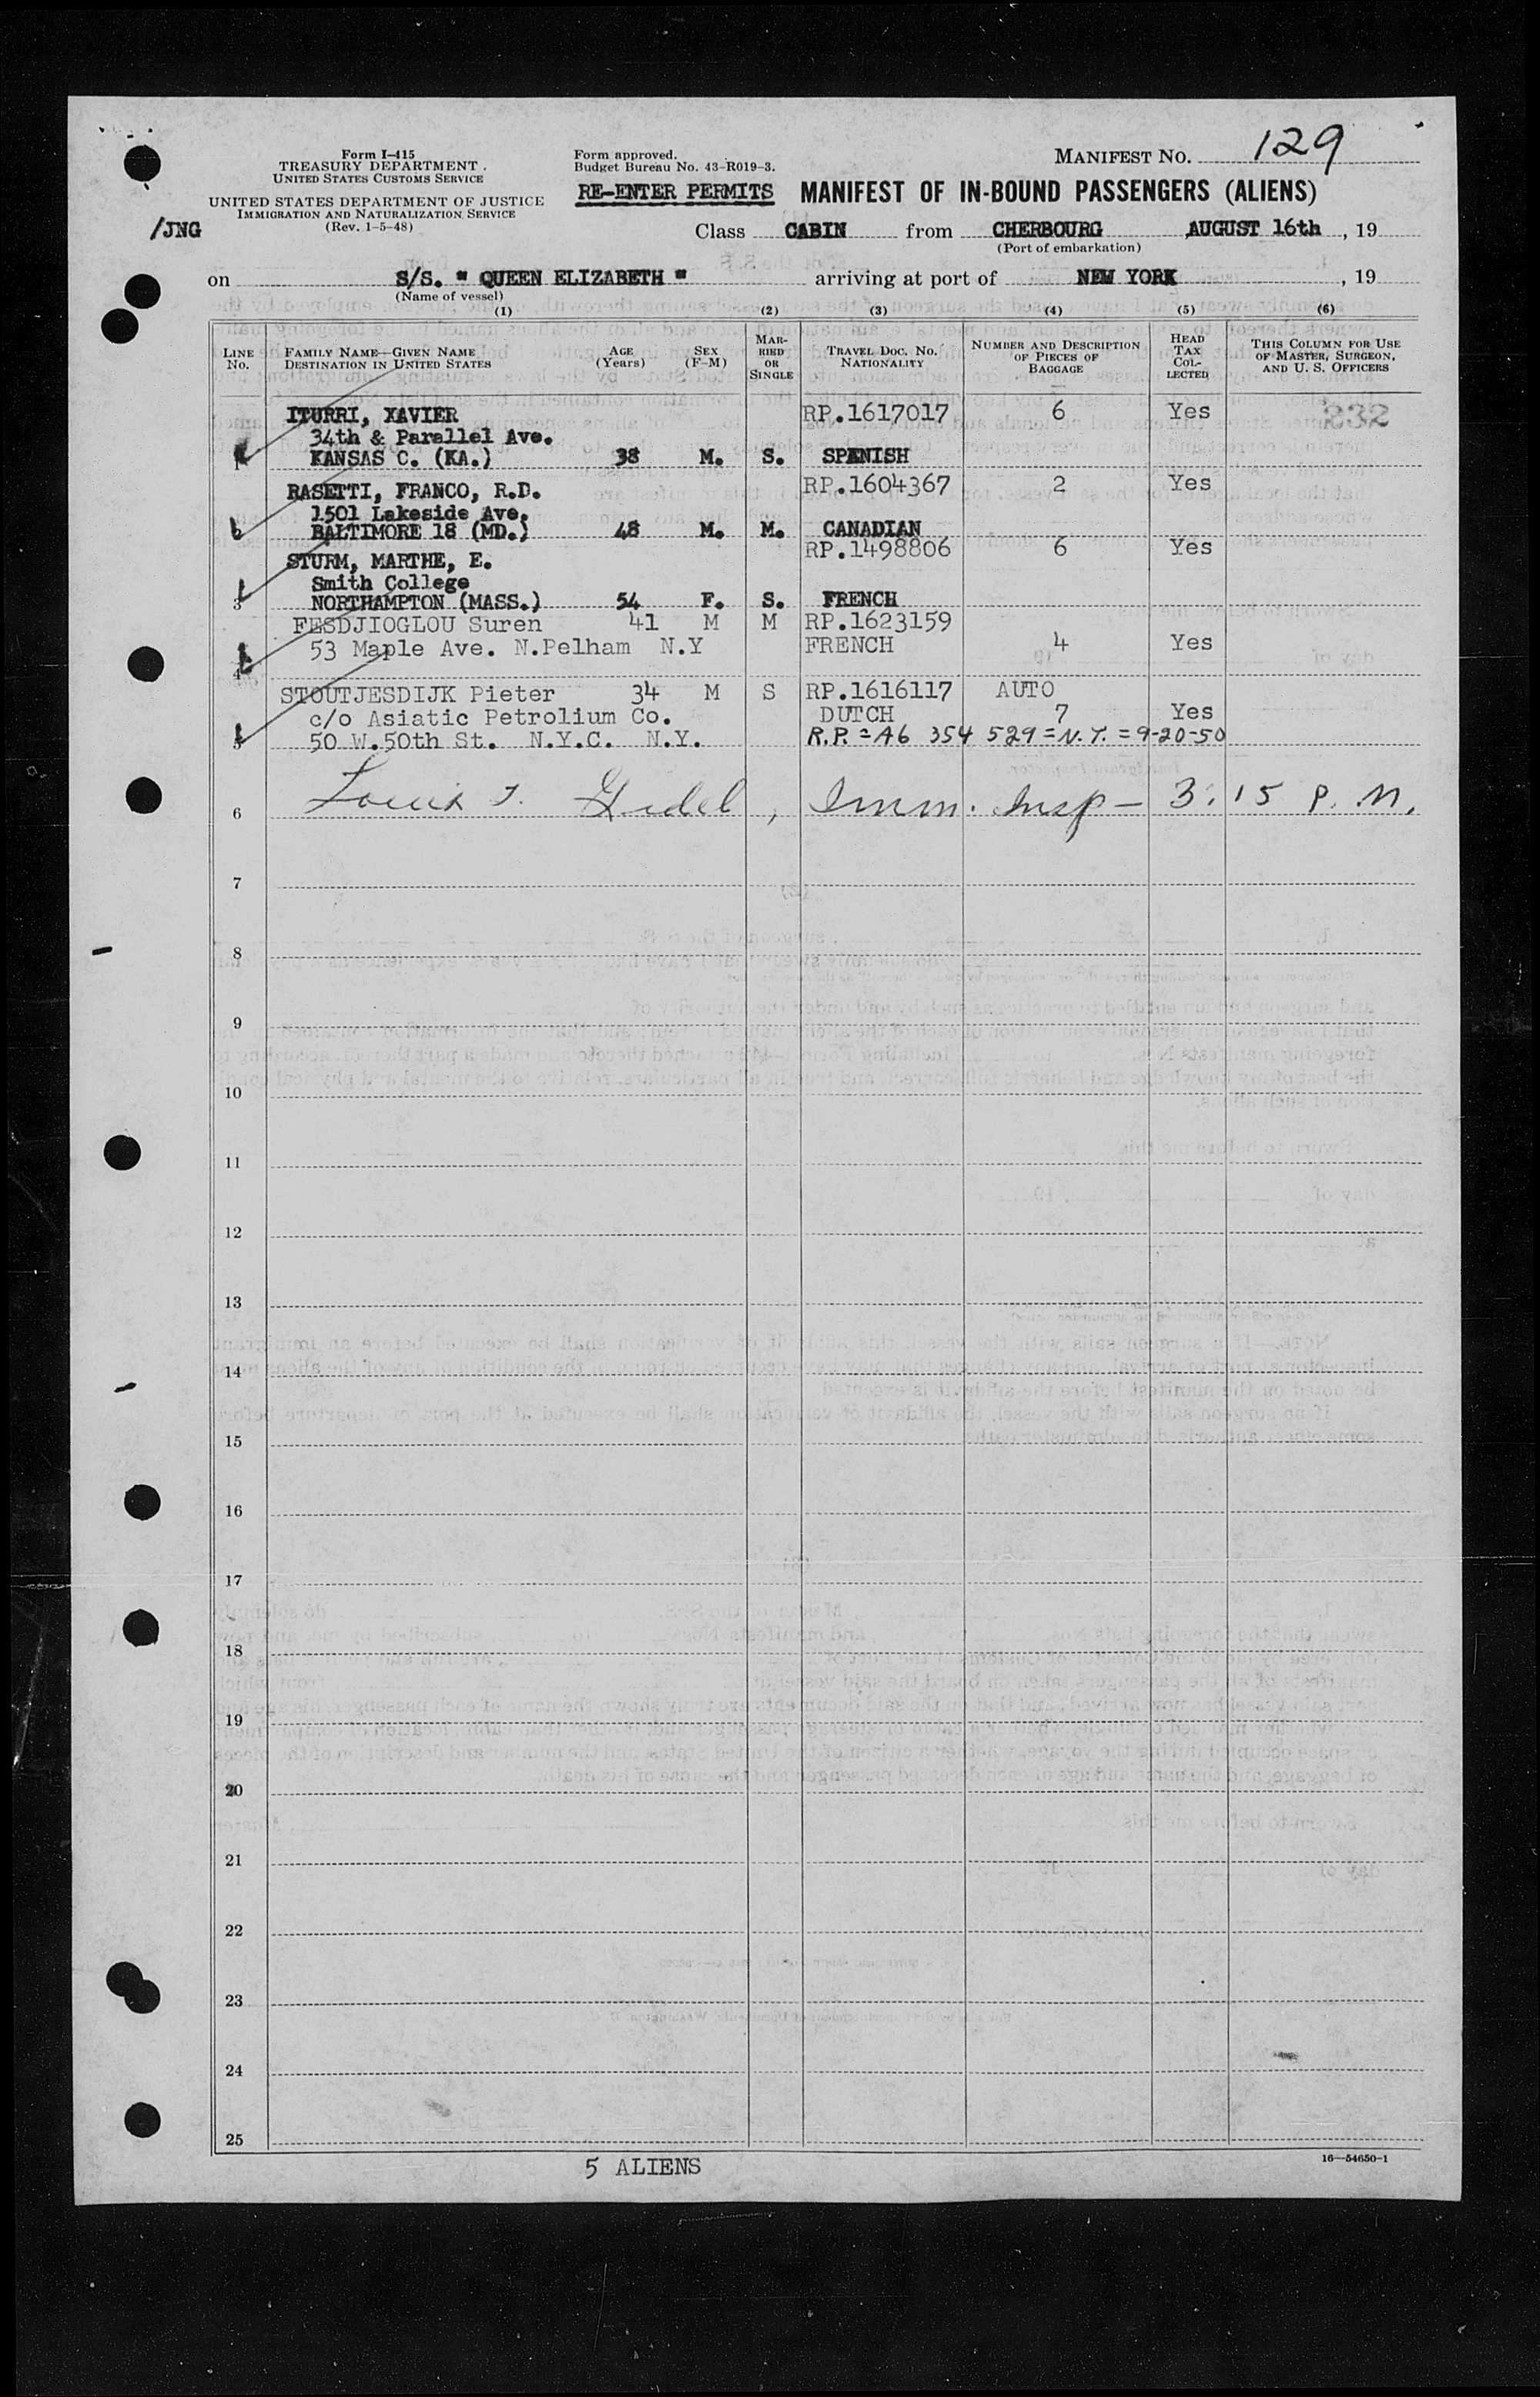 Form I-415
TREASURY DEPARTMENT.
UNITED STATES CUSTOMS SERVICE
UNITED STATES DEPARTMENT OF JUSTICE
IMMIGRATION AND NATURALIZATION SERVICE
(Rev. 1-5-48)
/JNG
Form approved.
Budget Bureau No. 43-R019-3.
MANIFEST NO. 129
RE-ENTER PERMITS MANIFEST OF IN-BOUND PASSENGERS (ALIENS)
Class CABIN from CHERBOURG AUGUST 16th, 19
(Port of embarkation)
on S/S. " QUEEN ELIZABETH " arriving at port of NEW YORK, 19
(Name of vessel)
(1) (2) (3) (4) (5) (6)
LINE No. FAMILY NAME—GIVEN NAME DESTINATION IN UNITED STATES AGE (Years) SEX (F-M) MARRIED OR SINGLE TRAVEL DOC. NO. NATIONALITY NUMBER AND DESCRIPTION OF PIECES OF BAGGAGE HEAD TAX COLLECTED THIS COLUMN FOR USE OF MASTER, SURGEON, AND U. S. OFFICERS
ITURRI, XAVIER RP.1617017 6 Yes
34th & Parallel Ave.
KANSAS C. (KA.) 38 M. S. SPANISH
RASETTI, FRANCO, R.D. RP.1604367 2 Yes
1501 Lakeside Ave.
BALTIMORE 18 (MD.) 48 M. M. CANADIAN
STURM, MARTHE, E. RP.1498806 6 Yes
Smith College
3 NORTHAMPTON (MASS.) 54 F. S. FRENCH
FESDJIOGLOU Suren 41 M M RP.1623159
4 53 Maple Ave. N.Pelham N.Y FRENCH 4 Yes
STOUTJESDIJK Pieter 34 M S RP.1616117 AUTO
c/o Asiatic Petrolium Co. DUTCH 7 Yes
5 50 W.50th St. N.Y.C. N.Y. R.P. = A6 354 529 = N.Y. = 9-20-50
6 Louis , Imm. Insp - 3:15 P.M.
7
8
9
10
11
12
13
14
15
16
17
18
19
20
21
22
23
24
25
5 ALIENS
16—54650-1